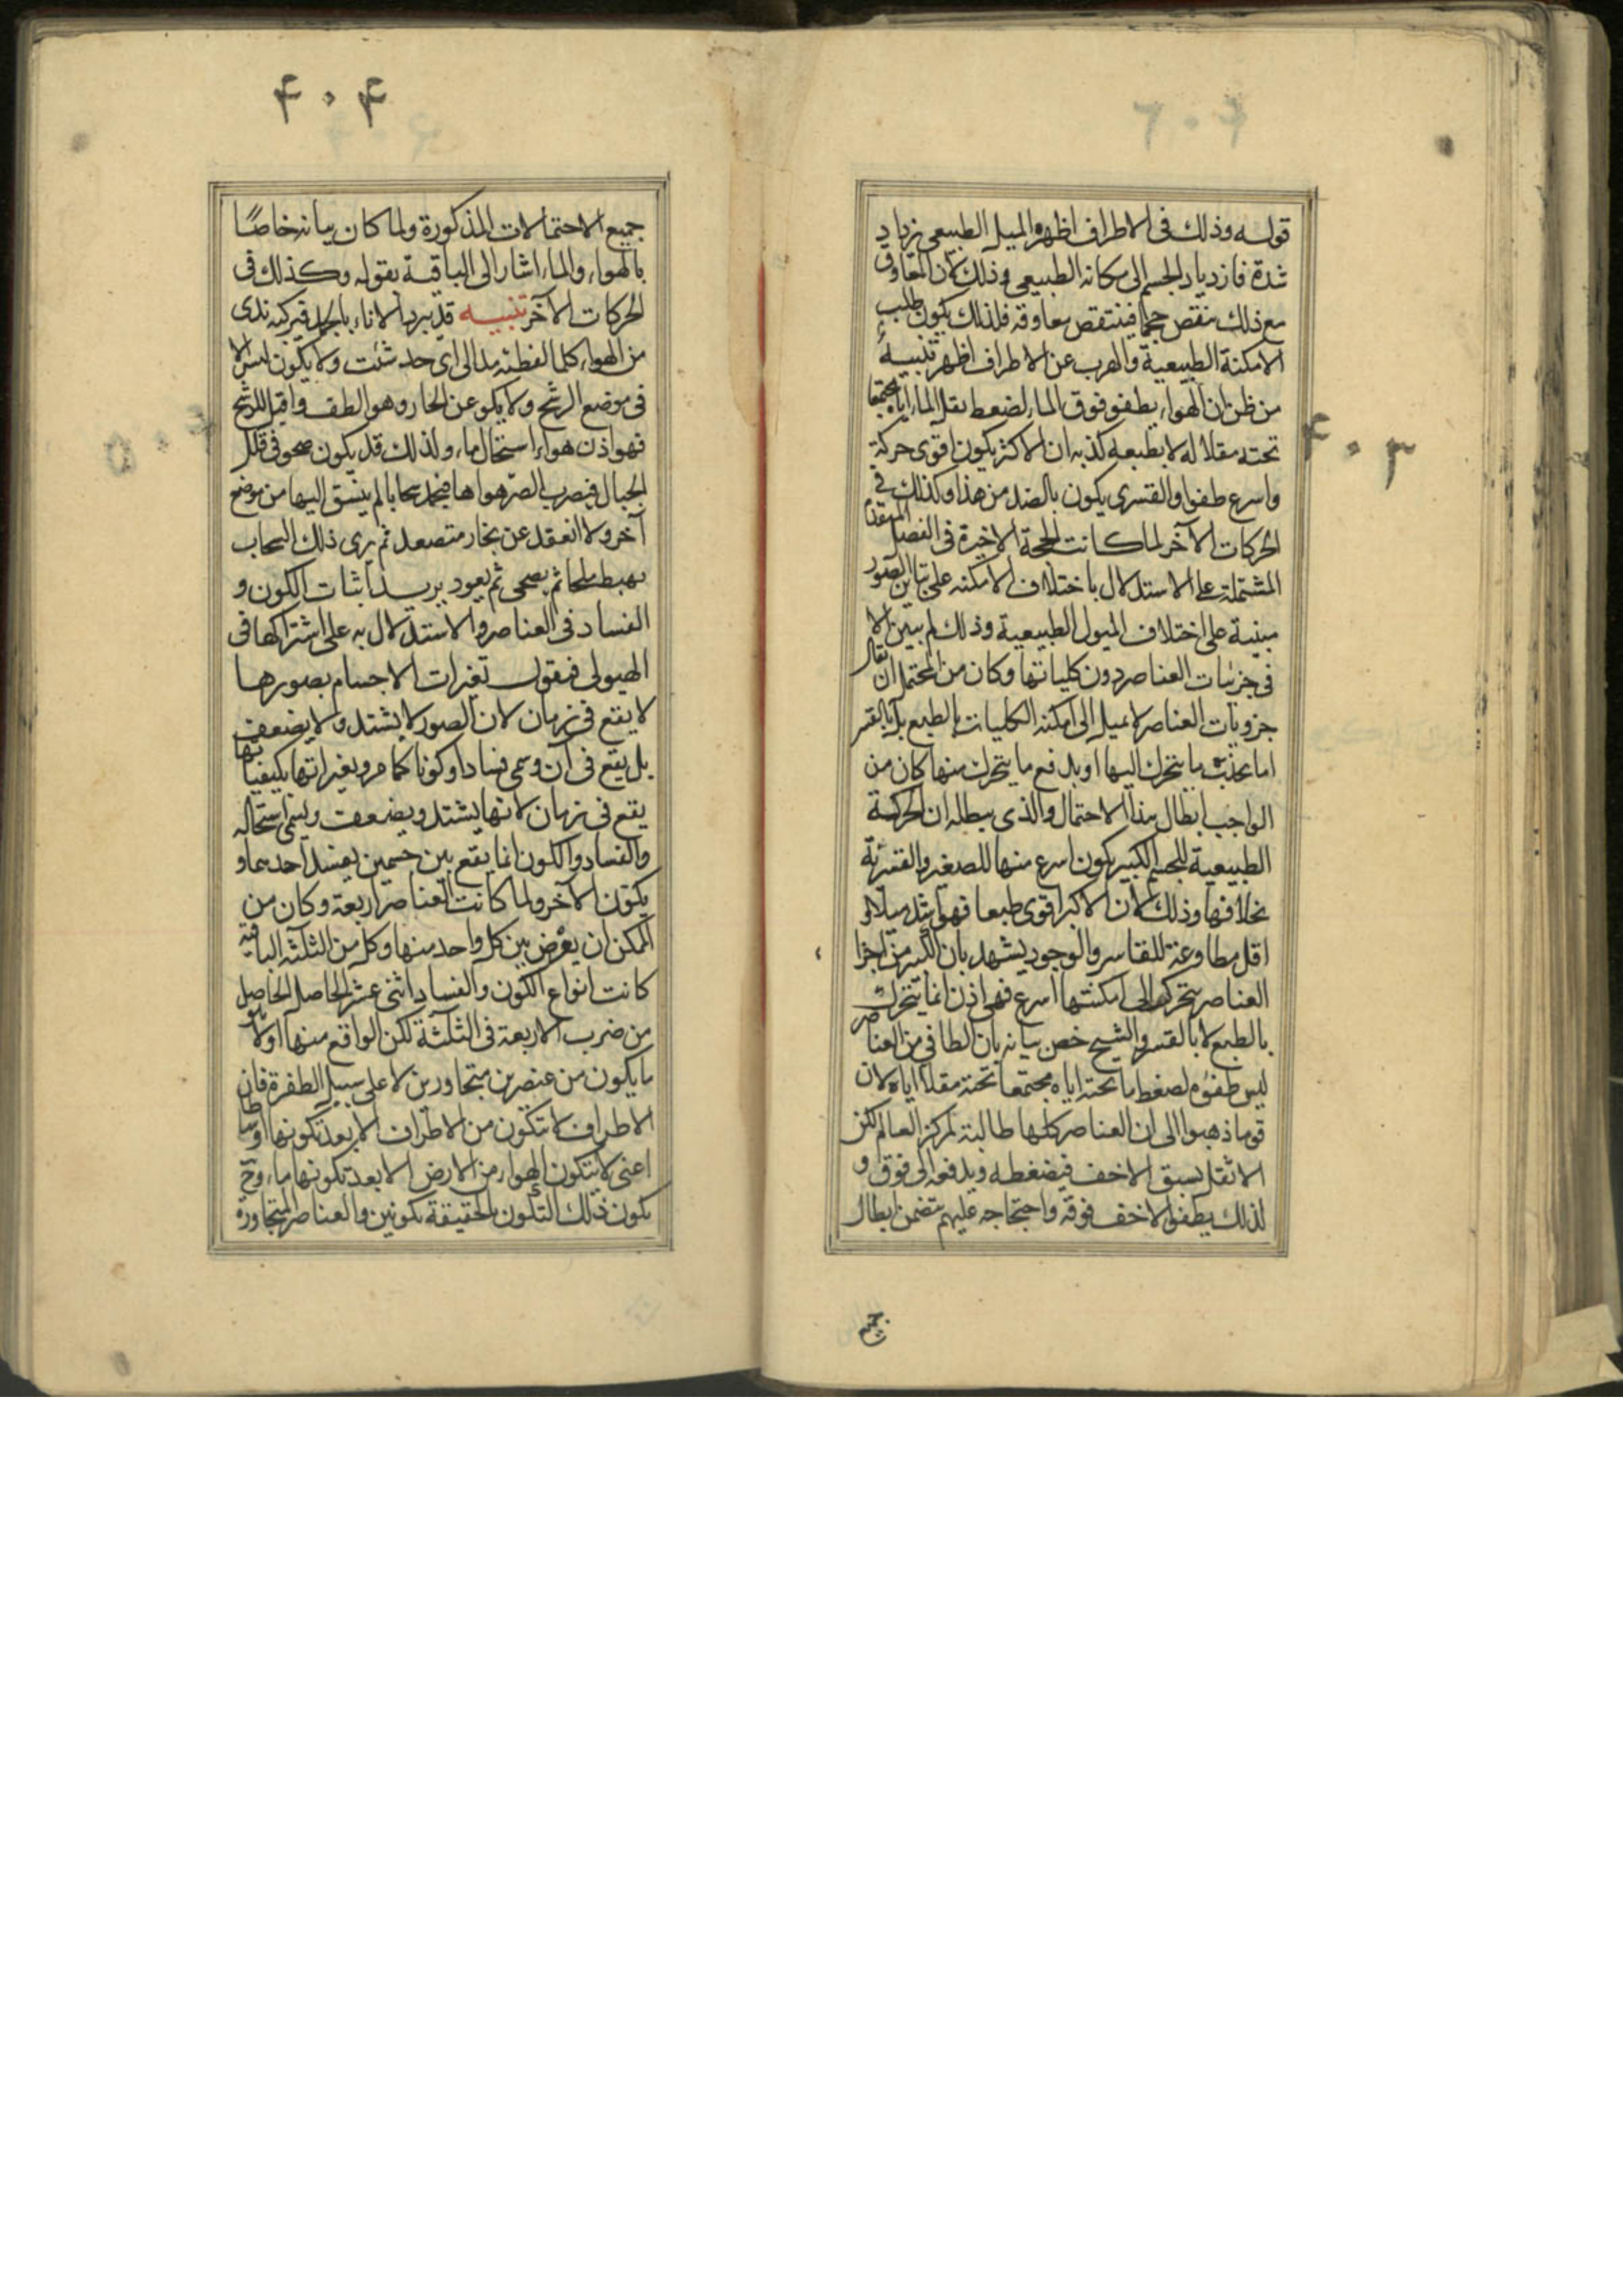 ۴۰۳
قوله وذلك فى الاطراف اظهره الميل الطبيعى يزداد
شدة فازدياد الجسم الى مكانه الطبيعى وذلك لان المعاوق
مع ذلك ينقص حجما فينتقص معاوقه فلذلك يكون طلب
الامكنة الطبيعية والهرب عن الاطراف اظهر تنبيه
من ظن ان الهواء يطفو فوق الماء لضغط ثقل الماء اياه مجتمعا
تحته مقلا له لا بطبعه كذبه ان الاكثر يكون اقوى حركة
واسرع طفوا والقسرى يكون بالضد من هذا وكذلك فى
الحركات الآخر لما كانت الحجة الاخيرة فى الفصل المتقدم
المشتملة على الاستدلال باختلاف الامكنه على تباين الصور
مبنية على اختلاف الميول الطبيعية وذلك لم يبين الا
فى جزئيات العناصر دون كلياتها وكان من المحتمل ان يقال
جزويات العناصر لا يميل الى امكنة الكليات بالطبع بل بالقسر
اما بجذب ما يتحرك اليها او بدفع ما يتحرك منها كان من
الواجب ابطال هذا الاحتمال والذى يبطله ان الحركة
الطبيعية للجسم الكبير يكون اسرع منها للصغير والقسرية
بخلافها وذلك لان الاكبر اقوى طبعا فهو اشد ميلا و
اقل مطاوعة للقاسر والوجود يشهد بان الكبير من اجزا
العناصر يتحرك الى امكنتها اسرع فهى اذن انما يتحرك
بالطبع لا بالقسر والشيخ خص بيانه بان الطافى من العناصر
ليس طفوه لضغط ما تحته اياه مجتمعا تحته مقلا اياه لان
قوما ذهبوا الى ان العناصر كلها طالبة لمركز العالم لكن
الاثقل يسبق الاخف فيضغطه ويدفعه الى فوق و
لذلك يطفو الاخف فوقه واحتجاجه عليهم يتضمن ابطال
جميع
۴۰۴
جميع الاحتمالات المذكورة ولما كان بيانه خاصًا
بالهواء والماء اشار الى الباقية بقوله وكذلك فى
الحركات الآخر تنبيه قد يبرد الاناء بالجمد فيركبه ندى
من الهواء كلما لقطته مد الى اى حد شئت ولا يكون ليس الا
فى موضع الرشح ولا يكون عن الحار وهو الطف واقبل للرشح
فهو اذن هواء استحال ماء ولذلك قد يكون صحو فى قلل
الجبال فيضرب الصر هواها فيجمد سحابا لم ينسق اليها من موضع
آخر ولا انعقد عن بخار متصعد ثم يرى ذلك السحاب
يهبط ثلجا ثم يصحى ثم يعود يريد اثبات الكون و
الفساد فى العناصر والاستدلال به على اشتراكها فى
الهيولى فنقول تغيرات الاجسام بصورها
لا يقع فى زمان لان الصور لا يشتد ولا يضعف
بل يقع فى آن وسمى فسادا وكونا كما مر وتغيراتها بكيفياتها
يقع فى زمان لانها يشتد ويضعف ويسمى استحاله
والفساد والكون انما يقع بين جسمين يفسد احدهما و
يكون الآخر ولما كانت العناصر اربعة وكان من
الممكن ان يعرض بين كل واحد منها وكل من الثلثه الباقية
كانت انواع الكون والفساد اثنى عشر الحاصل الحاصل
من ضرب الاربعة فى الثلثة لكن الواقع منها اولا هو
ما يكون من عنصرين متجاورين لا على سبيل الطفرة فان
الاطراف لا يتكون من الاطراف الا بعد تكونها اوساطا
اعنى لا يتكون الهواء من الارض الا بعد تكونها ماء وح
يكون ذلك التكون بالحقيقة تكونين والعناصر المتجاورة